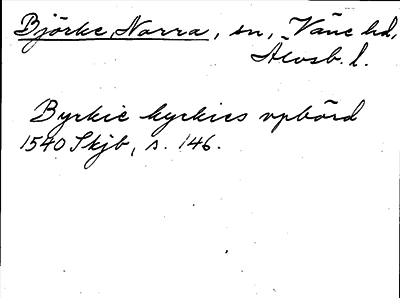 Björke, Norra, sn, Väne hd,
Älvsb. l.
Byrkie kyrkies vpbörd
1540 Skjb, s. 146.